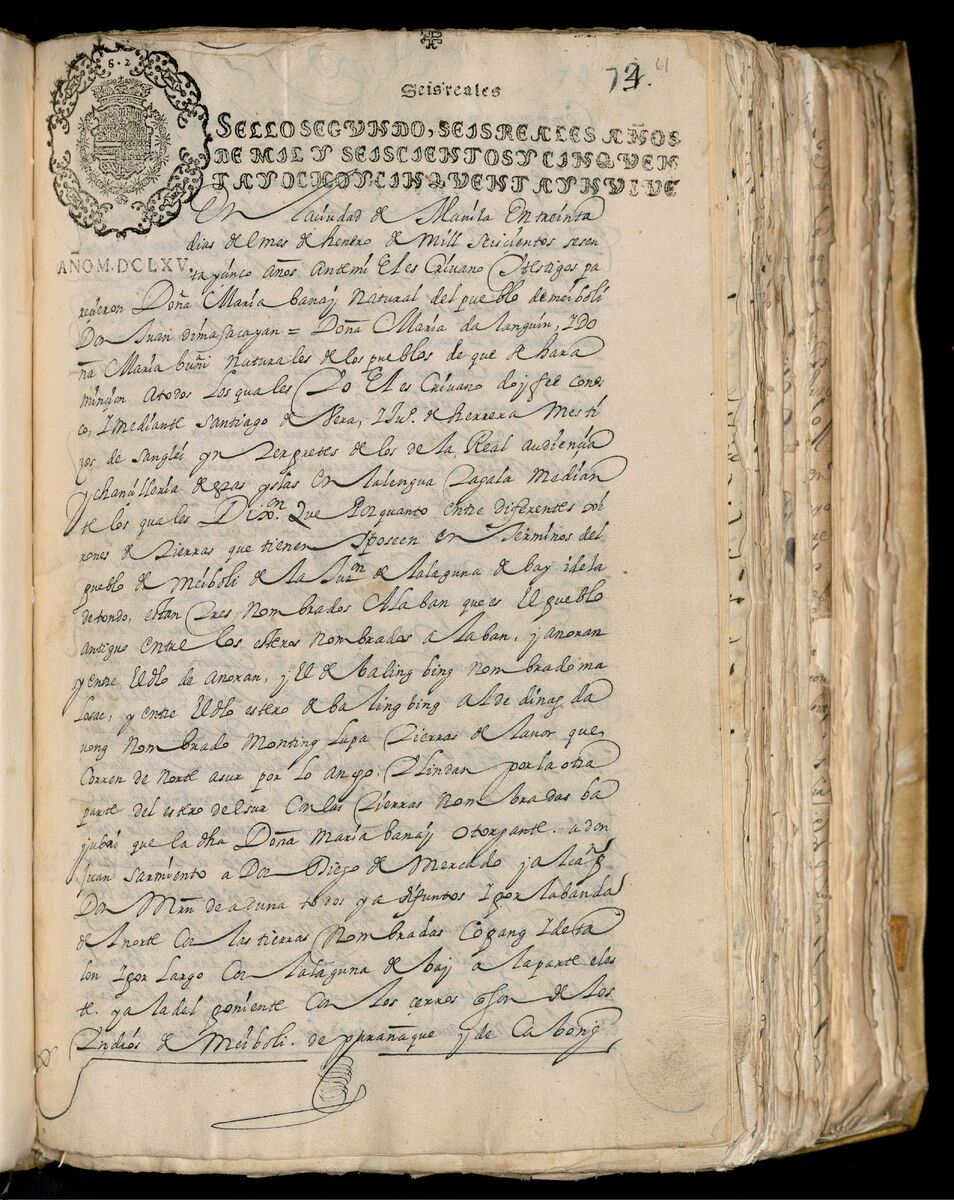 73. 61
Seis reales
SELLO SEGVNDO, SEIS REALES AÑOS
DE MIL Y SEISCIENTOS Y CINQVEN
TA Y OCHO Y CINQVENTA Y NVEVE
AÑO M.DCLXV.
En la ciudad de Manila En treinta
dias del mes de henero de Mill seiscientos sesen
ta y cinco años ante mi El escrivano y testigos pa
recieron Doña Maria banaj Natural del pueblo de meiboli
Don Juan dimasacayan = Doña Maria dalanguin, I Do
ña Maria buñi Naturales de los pueblos de que se hara
mincion a todos los quales Yo El escrivano doj fee conos
co, I mediante santiago de Vera, I Juº. de herrera Mesti
zos de sanglei ynterpretes de los de la Real audiencia
y chanssilleria de estas yslas En la lengua tagala Median
te los quales Dixn. Que Por quanto entre diferentes
rones de tierras que tienen I poseen en terminos del
pueblo de meiboli de la Jurn de la laguna de bay i de la
de tondo, estan tres, Nombrados Alaban que es El pueblo
antiguo entre los esteros nombrados alaban, j anoran
y entre El dho de anoran, j El de baling bing nombrado ma
losac, y entre El dho estero de baling bing al de dinag da
uong nombrado monting lupa tierras de lavor que
Corren de norte a sur por lo ango. I lindan por la otra
parte del estero del sur Con las tierras nombradas ba
jubai que la dha Doña maria banaj otorgante. a don
Juan sarmiento a Don Diego de Mercado j al cappn
Don Mrn de aduna todos ya difuntos I por la banda
del norte Con las tierras Nombradas cogang I de ta
lon I por largo Con la laguna de baj a la parte eles
te. ya la del poniente Con los cerros q son de los
Indios de Meiboli. de parañaque y de Cabong